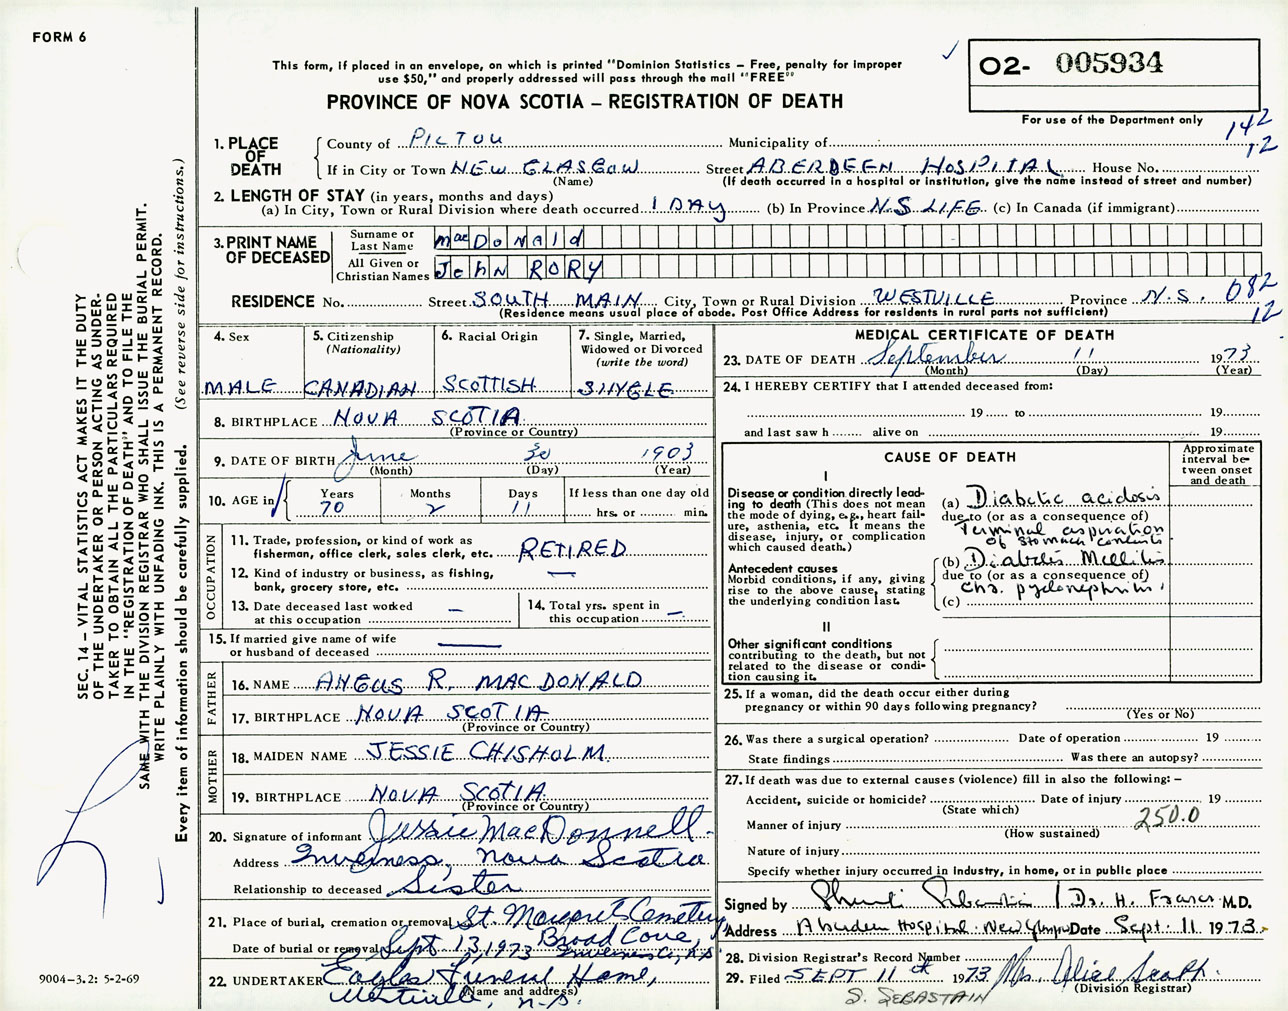 FORM 6
This form, if placed in an envelope, on which is printed "Dominion Statistics – Free, penalty for improper
use $50," and properly addressed will pass through the mail "FREE"
PROVINCE OF NOVA SCOTIA – REGISTRATION OF DEATH
02- 005934
For use of the Department only
142
12
1. PLACE OF DEATH
County of PICTOU Municipality of
If in City or Town NEW GLASGOW Street ABERDEEN HOSPITAL House No.
(Name) (If death occurred in a hospital or institution, give the name instead of street and number)
2. LENGTH OF STAY (in years, months and days)
(a) In City, Town or Rural Division where death occurred 1 DAY (b) In Province N.S LIFE (c) In Canada (if immigrant)
3. PRINT NAME OF DECEASED
Surname or Last Name MacDonald
All Given or Christian Names JOHN RORY
RESIDENCE No. Street SOUTH MAIN City, Town or Rural Division WESTVILLE Province N.S. 082
12
(Residence means usual place of abode. Post Office Address for residents in rural parts not sufficient)
4. Sex
MALE
5. Citizenship
(Nationality)
CANADIAN
6. Racial Origin
SCOTTISH
7. Single, Married,
Widowed or Divorced
(write the word)
SINGLE
8. BIRTHPLACE NOVA SCOTIA
(Province or Country)
9. DATE OF BIRTH June 30 1903
(Month) (Day) (Year)
10. AGE in
Years Months Days If less than one day old
70 2 11 hrs. or min.
OCCUPATION
11. Trade, profession, or kind of work as
fisherman, office clerk, sales clerk, etc. RETIRED
12. Kind of industry or business, as fishing,
bank, grocery store, etc. —
13. Date deceased last worked
at this occupation —
14. Total yrs. spent in
this occupation —
15. If married give name of wife
or husband of deceased —
FATHER
16. NAME ANGUS R. MACDONALD
17. BIRTHPLACE NOVA SCOTIA
(Province or Country)
MOTHER
18. MAIDEN NAME JESSIE CHISHOLM.
19. BIRTHPLACE NOVA SCOTIA
(Province or Country)
20. Signature of informant Jessie MacDonnell
Address Inverness, Nova Scotia
Relationship to deceased Sister
21. Place of burial, cremation or removal St. Margaret Cemetery,
Broad Cove,
Date of burial or removal Sept 13, 1973 Inverness Co, N.S.
22. UNDERTAKER Eagles Funeral Home,
(Name and address)
Westville, N.S.
MEDICAL CERTIFICATE OF DEATH
23. DATE OF DEATH September 11 1973
(Month) (Day) (Year)
24. I HEREBY CERTIFY that I attended deceased from:
19 to 19
and last saw h alive on 19
CAUSE OF DEATH
Approximate
interval be-
tween onset
and death
I
Disease or condition directly lead-
ing to death (This does not mean
the mode of dying, e.g., heart fail-
ure, asthenia, etc. It means the
disease, injury, or complication
which caused death.)
(a) Diabetic acidosis
due to (or as a consequence of)
Terminal aspiration
of stomach contents
Antecedent causes
Morbid conditions, if any, giving
rise to the above cause, stating
the underlying condition last.
(b) Diabetis Mellitis
due to (or as a consequence of)
(c) Chr. pyelonephritis.
II
Other significant conditions
contributing to the death, but not
related to the disease or condi-
tion causing it.
25. If a woman, did the death occur either during
pregnancy or within 90 days following pregnancy?
(Yes or No)
26. Was there a surgical operation? Date of operation 19
State findings Was there an autopsy?
27. If death was due to external causes (violence) fill in also the following: –
Accident, suicide or homicide? Date of injury 19
(State which)
Manner of injury 250.0
(How sustained)
Nature of injury
Specify whether injury occurred in Industry, in home, or in public place
Signed by / Dr. H. M.D.
Address Aberdeen Hospital. New Glasgow Date Sept. 11 1973
28. Division Registrar's Record Number
29. Filed SEPT 11th 1973 Mrs. Alice
(Division Registrar)
S. SEBASTAIN
SEC. 14 – VITAL STATISTICS ACT MAKES IT THE DUTY
OF THE UNDERTAKER OR PERSON ACTING AS UNDER-
TAKER TO OBTAIN ALL THE PARTICULARS REQUIRED
IN THE "REGISTRATION OF DEATH" AND TO FILE THE
SAME WITH THE DIVISION REGISTRAR WHO SHALL ISSUE THE BURIAL PERMIT.
WRITE PLAINLY WITH UNFADING INK. THIS IS A PERMANENT RECORD.
Every item of information should be carefully supplied. (See reverse side for instructions.)
9004–3.2: 5-2-69